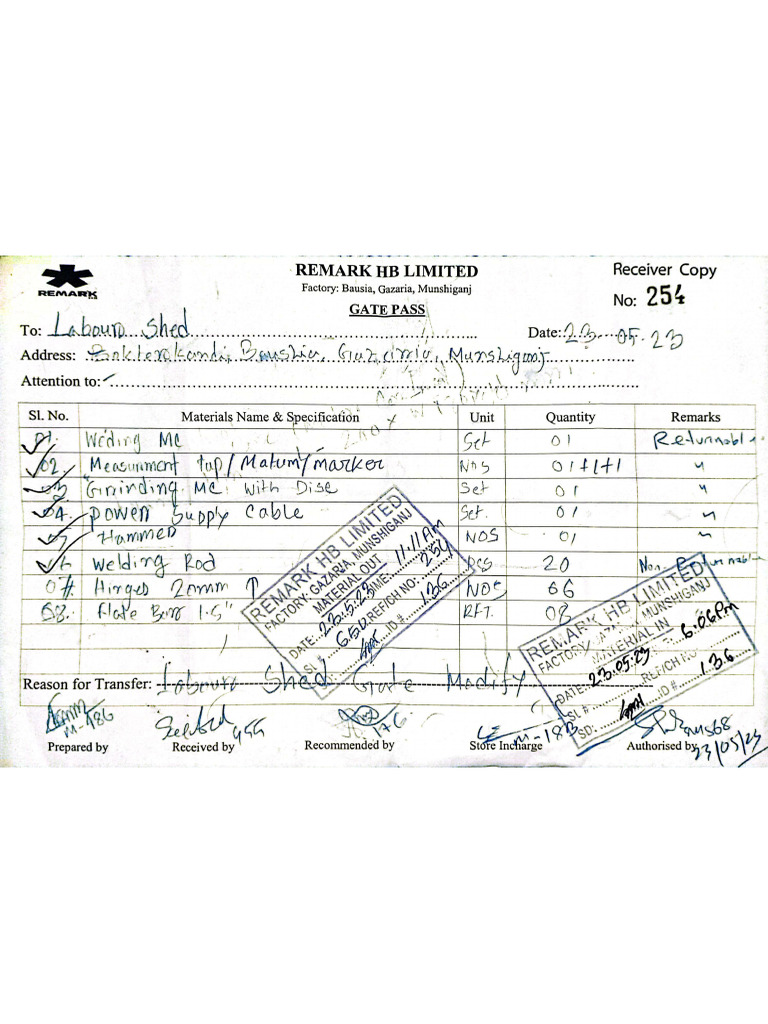 REMARK HB LIMITED
Receiver Copy
REMARK
Factory: Bausia, Gazaria, Munshiganj
No: 254
GATE PASS
To: Labour Shed
Date: 23.05.23
Address: Baushia, Gazaria, Munshiganj
Attention to:
Sl. No. Materials Name & Specification Unit Quantity Remarks
01. Welding MC Set 01 Returnable
02. Measurment tap/Matum/marker Nos 01+1+1 "
03 Grinding MC with Disc Set 01 "
04. Power Supply Cable Set. 01 "
05 Hammer NOS 01 "
06 Welding Rod Pcs 20 Non Returnable
07. Hinges 20mm NOS 06
08. Flate Barr 1.5" RFT. 08
REMARK HB LIMITED
FACTORY: GAZARIA, MUNSHIGANJ
MATERIAL OUT
DATE: 23.5.23 TIME: 11.11 Am
SL # 650 REF/CH NO: 254
ID # 136
REMARK HB LIMITED
FACTORY: GAZARIA, MUNSHIGANJ
MATERIAL IN
DATE: 23.05.23 6:06 Pm
SL # REF/CH NO
SD: ID # 136
Reason for Transfer: Labour Shed Gate Modify
M-186 176 M-183 23/05/23
Prepared by Received by Recommended by Store Incharge Authorised by